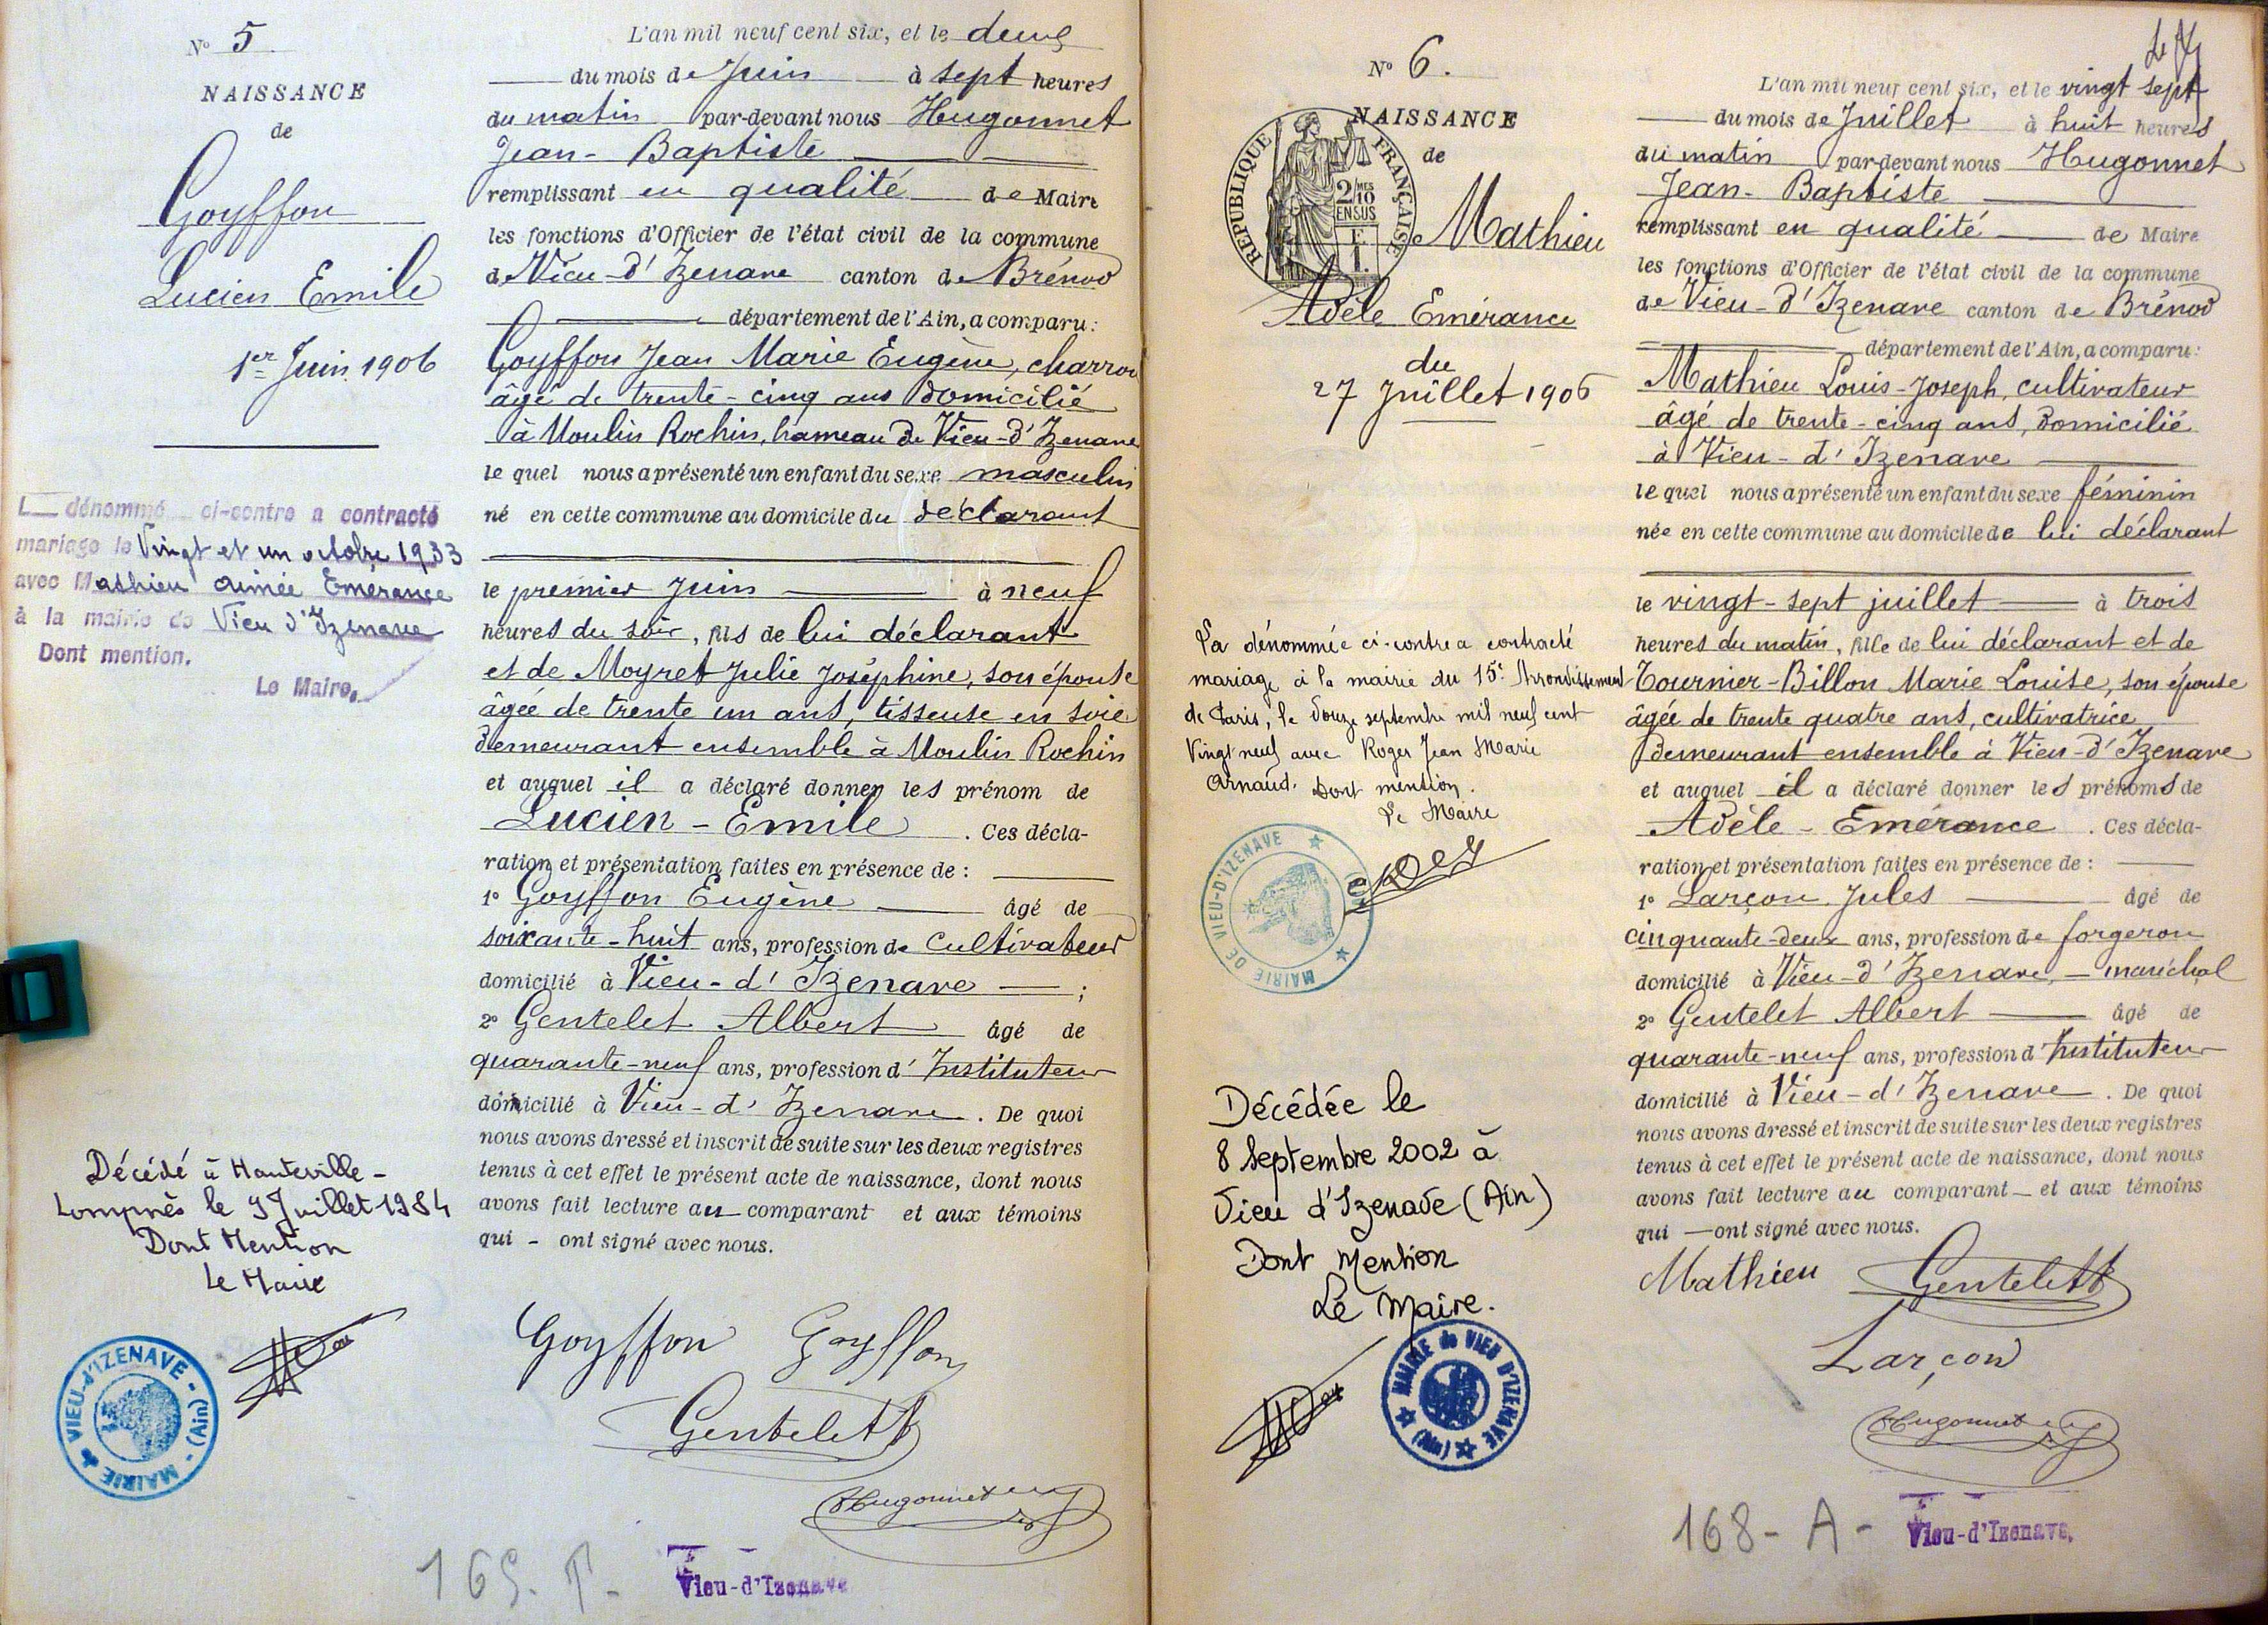 N° 5
NAISSANCE
de
Goyffon
Lucien Emile
1er Juin 1906
L dénommé ci-contre a contracté
mariage le Vingt et un octobre 1933
avec Mathieu Aimée Emérance
à la mairie de Vieu d'Izenave
Dont mention.
Le Maire.
Décédé à Hauteville-
Lompnès le 9 Juillet 1984
Dont Mention
Le Maire
MAIRIE - VIEU-D'IZENAVE - (Ain)
L'an mil neuf cent six, et le deux
du mois de Juin à sept heures
du matin par-devant nous Hugonnet
Jean-Baptiste
remplissant en qualité de Maire
les fonctions d'Officier de l'état civil de la commune
de Vieu-d'Izenave canton de Brénod
département de l'Ain, a comparu:
Goyffon Jean Marie Eugène, charron
âgé de trente-cinq ans domicilié
à Moulin Rochin, hameau de Vieu-d'Izenave
le quel nous a présenté un enfant du sexe masculin
né en cette commune au domicile du déclarant
le premier Juin à neuf
heures du soir, fils de lui déclarant
et de Moyret Julie Joséphine, son épouse
âgée de trente un ans, tisseuse en soie
demeurant ensemble à Moulin Rochin
et auquel il a déclaré donner les prénom de
Lucien-Emile. Ces décla-
ration et présentation faites en présence de:
1° Goyffon Eugène âgé de
soixante-huit ans, profession de Cultivateur
domicilié à Vieu-d'Izenave ;
2° Gentelet Albert âgé de
quarante-neuf ans, profession d'Instituteur
domicilié à Vieu-d'Izenave. De quoi
nous avons dressé et inscrit de suite sur les deux registres
tenus à cet effet le présent acte de naissance, dont nous
avons fait lecture au comparant et aux témoins
qui - ont signé avec nous.
Goyffon Goyffon
Gentelet
Hugonnet
Vieu-d'Izenave
N° 6.
NAISSANCE
de
REPUBLIQUE FRANÇAISE
2/10 MES
EN SUS
F.
1.
Mathieu
Adèle Emérance
du
27 Juillet 1906
La dénommée ci-contre a contracté
mariage à la mairie du 15e Arrondissement
de Paris, le douze septembre mil neuf cent
Vingt neuf avec Roger Jean Marie
Arnaud. Dont mention.
Le Maire
MAIRIE DE VIEU-D'IZENAVE (AIN)
Décédée le
8 Septembre 2002 à
Vieu d'Izenave (Ain)
Dont Mention
Le Maire.
MAIRIE de VIEU D'IZENAVE (AIN)
L'an mil neuf cent six, et le vingt sept
du mois de Juillet à huit heures
du matin par-devant nous Hugonnet
Jean-Baptiste
remplissant en qualité de Maire
les fonctions d'Officier de l'état civil de la commune
de Vieu-d'Izenave canton de Brénod
département de l'Ain, a comparu:
Mathieu Louis-Joseph, cultivateur
âgé de trente-cinq ans, domicilié
à Vieu-d'Izenave
le quel nous a présenté un enfant du sexe féminin
née en cette commune au domicile de lui déclarant
le vingt-sept juillet à trois
heures du matin, fille de lui déclarant et de
Tournier-Billon Marie Louise, son épouse
âgée de trente quatre ans, cultivatrice
demeurant ensemble à Vieu-d'Izenave
et auquel il a déclaré donner les prénoms de
Adèle-Emérance. Ces décla-
ration et présentation faites en présence de:
1° Larçon Jules âgé de
cinquante-deux ans, profession de forgeron
domicilié à Vieu-d'Izenave, - maréchal
2° Gentelet Albert âgé de
quarante-neuf ans, profession d'Instituteur
domicilié à Vieu-d'Izenave. De quoi
nous avons dressé et inscrit de suite sur les deux registres
tenus à cet effet le présent acte de naissance, dont nous
avons fait lecture au comparant et aux témoins
qui — ont signé avec nous.
Mathieu Gentelet
Larçon
Hugonnet
168- A -
Vieu-d'Izenave.